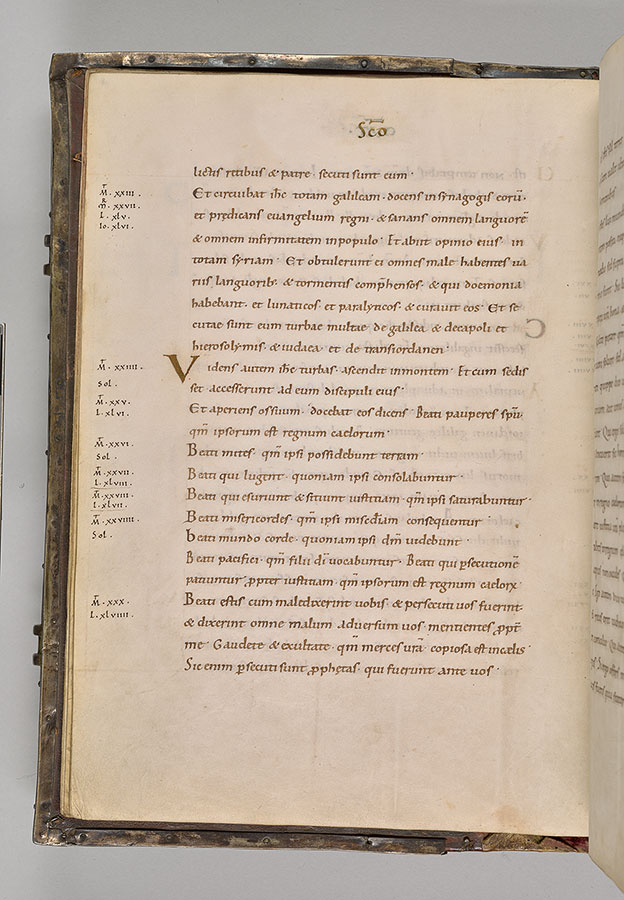 Scō
lictis retibus & patre · secuti sunt eum ·
Et circuibat ihc̄ totam galileam · docens in synagogis eorū ·
et predicans euangelium regni · & sanans omnem languorē
& omnem infirmitatem in populo · Et abiit opinio eius in
totam syriam · Et obtulerunt ei omnes male habentes ua
riis languorib; & tormentis comp̄hensos · & qui doemonia
habebant · et lunaticos et paralyticos · & curauit eos · Et se
cutae sunt eum turbae multae de galilea & decapoli et
hierosolymis & iudaea et de transiordanen ·
Videns autem ihc̄ turbas · ascendit in montem · Et cum sedis
set accesserunt ad eum discipuli eius ·
Et aperiens os suum · docebat eos dicens · Beati pauperes spū ·
qm̄ ipsorum est regnum caelorum ·
Beati mites · qm̄ ipsi possidebunt terram ·
Beati qui lugent · quoniam ipsi consolabuntur ·
Beati qui esuriunt & sitiunt iustitiam · qm̄ ipsi saturabuntur ·
Beati misericordes · qm̄ ipsi misc̄diam consequentur ·
Beati mundo corde · quoniam ipsi dm̄ uidebunt ·
Beati pacifici · qm̄ filii dī uocabuntur · Beati qui ꝑsecutionē
patiuntur ꝓpter iustitiam · qm̄ ipsorum est regnum caeloꝝ
Beati estis cum maledixerint uobis · & persecuti uos fuerint ·
& dixerint omne malum aduersum uos · mentientes ꝓpt̄
me · Gaudete & exultate · qm̄ merces ur̄a copiosa est in caelis ·
Sic enim ꝑsecuti sunt ꝓphetas · qui fuerunt ante uos ·
M̄ · xxiii ·
m̄ · xxvii ·
L · xlv ·
Io · xlvi ·
M̄ · xxiiii ·
Sol ·
M̄ · xxv ·
L · xlvi ·
M̄ · xxvi ·
Sol ·
M̄ · xxvii ·
L · xlviii ·
M̄ · xxviii ·
L · xlvii ·
M̄ · xxviiii ·
Sol ·
M̄ · xxx ·
L · xlviiii ·